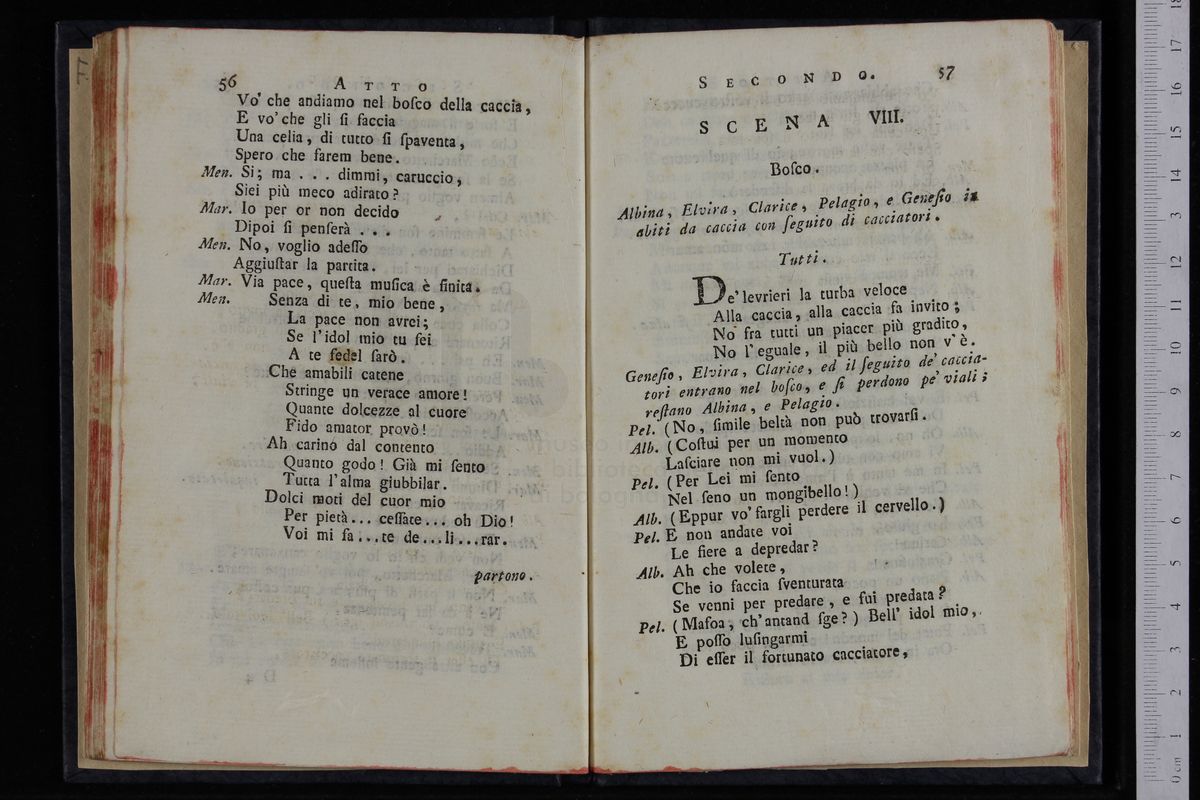 56 ATTO
Vo' che andiamo nel boſco della caccia,
E vo' che gli ſi faccia
Una celia, di tutto ſi ſpaventa,
Spero che farem bene.
Men. Si; ma . . . dimmi, caruccio,
Siei più meco adirato?
Mar. Io per or non decido
Dipoi ſi penſerà . . .
Men. No, voglio adeſſo
Aggiuſtar la partita.
Mar. Via pace, queſta muſica è finita.
Men. Senza di te, mio bene,
La pace non avrei;
Se l'idol mio tu ſei
A te fedel ſarò.
Che amabili catene
Stringe un verace amore!
Quante dolcezze al cuore
Fido amator provò!
Ah carino dal contento
Quanto godo! Già mi ſento
Tutta l'alma giubbilar.
Dolci moti del cuor mio
Per pietà... ceſſate... oh Dio!
Voi mi fa...te de...li...rar.
partono.
SECONDO. 57
SCENA VIII.
Boſco.
Albina, Elvira, Clarice, Pelagio, e Geneſio in
abiti da caccia con ſeguito di cacciatori.
Tutti.
De' levrieri la turba veloce
Alla caccia, alla caccia fa invito;
No fra tutti un piacer più gradito,
No l'eguale, il più bello non v'è.
Geneſio, Elvira, Clarice, ed il ſeguito de' caccia-
tori entrano nel boſco, e ſi perdono pe' viali;
reſtano Albina, e Pelagio.
Pel. (No, ſimile beltà non può trovarſi.
Alb. (Coſtui per un momento
Laſciare non mi vuol.)
Pel. (Per Lei mi ſento
Nel ſeno un mongibello!)
Alb. (Eppur vo' fargli perdere il cervello.)
Pel. E non andate voi
Le fiere a depredar?
Alb. Ah che volete,
Che io faccia ſventurata
Se venni per predare, e fui predata?
Pel. (Mafoa, ch'antand ſge?) Bell' idol mio,
E poſſo luſingarmi
Di eſſer il fortunato cacciatore,